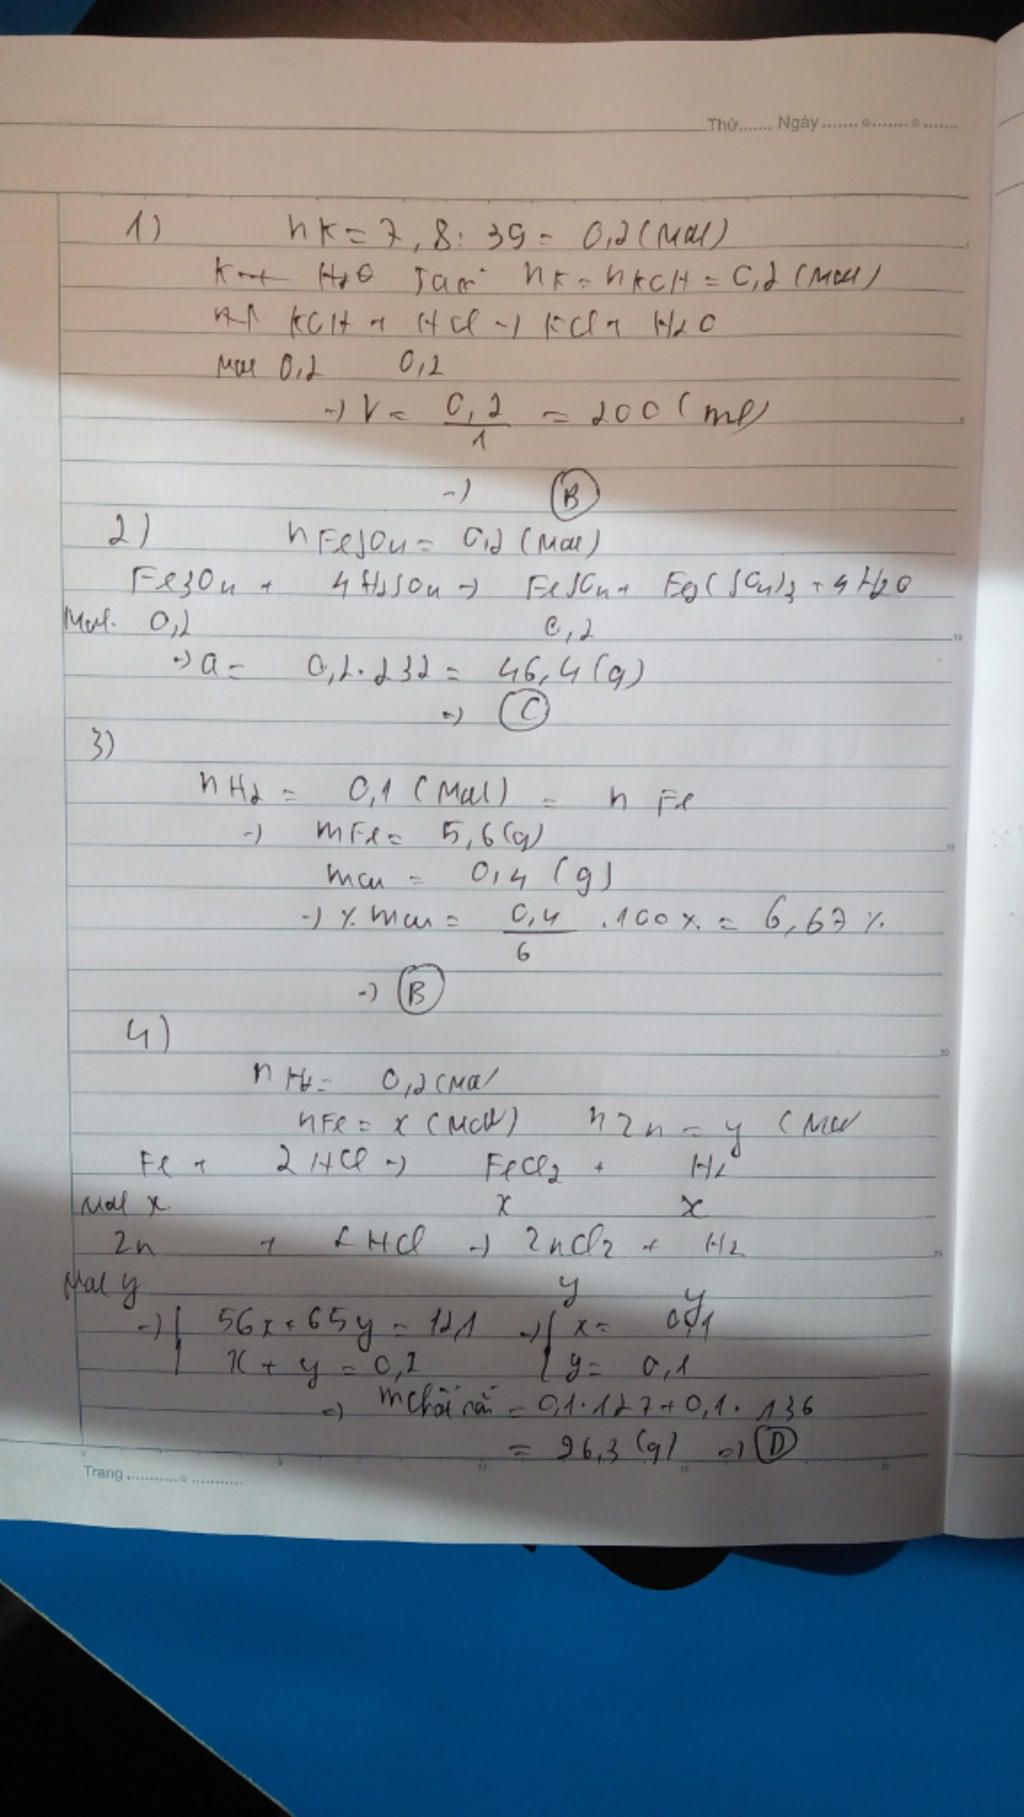 Thứ....... Ngày ....... o ....... o .......
1) nK = 7,8 : 39 = 0,2 (mol)
K → H2O nK = nKOH = 0,2 (mol)
KOH + HCl → KCl + H2O
mol 0,2 0,2
→ V = 0,2/1 = 200 (ml)
→ B
2) nFeSO4 = 0,2 (mol)
Fe3O4 + 4H2SO4 → FeSO4 + Fe2(SO4)3 + 4H2O
Mol. 0,2 0,2
→ a = 0,2.232 = 46,4 (g)
→ C
3)
nH2 = 0,1 (mol) = n Fe
→ mFe = 5,6 (g)
mcu = 0,4 (g)
→ % mcu = 0,4/6 .100% = 6,67 %
→ B
4)
nH2 = 0,2 (mol
nFe = x (mol) nZn = y (mol
Fe + 2HCl → FeCl2 + H2
Mol x x x
Zn + 2HCl → ZnCl2 + H2
Mol y y y
→ { 56x + 65y = 12,1 → { x = 0,1
x + y = 0,2 y = 0,1
→ mchất rắn = 0,1.127 + 0,1.136
= 26,3 (g) → D
Trang ........... o ...........